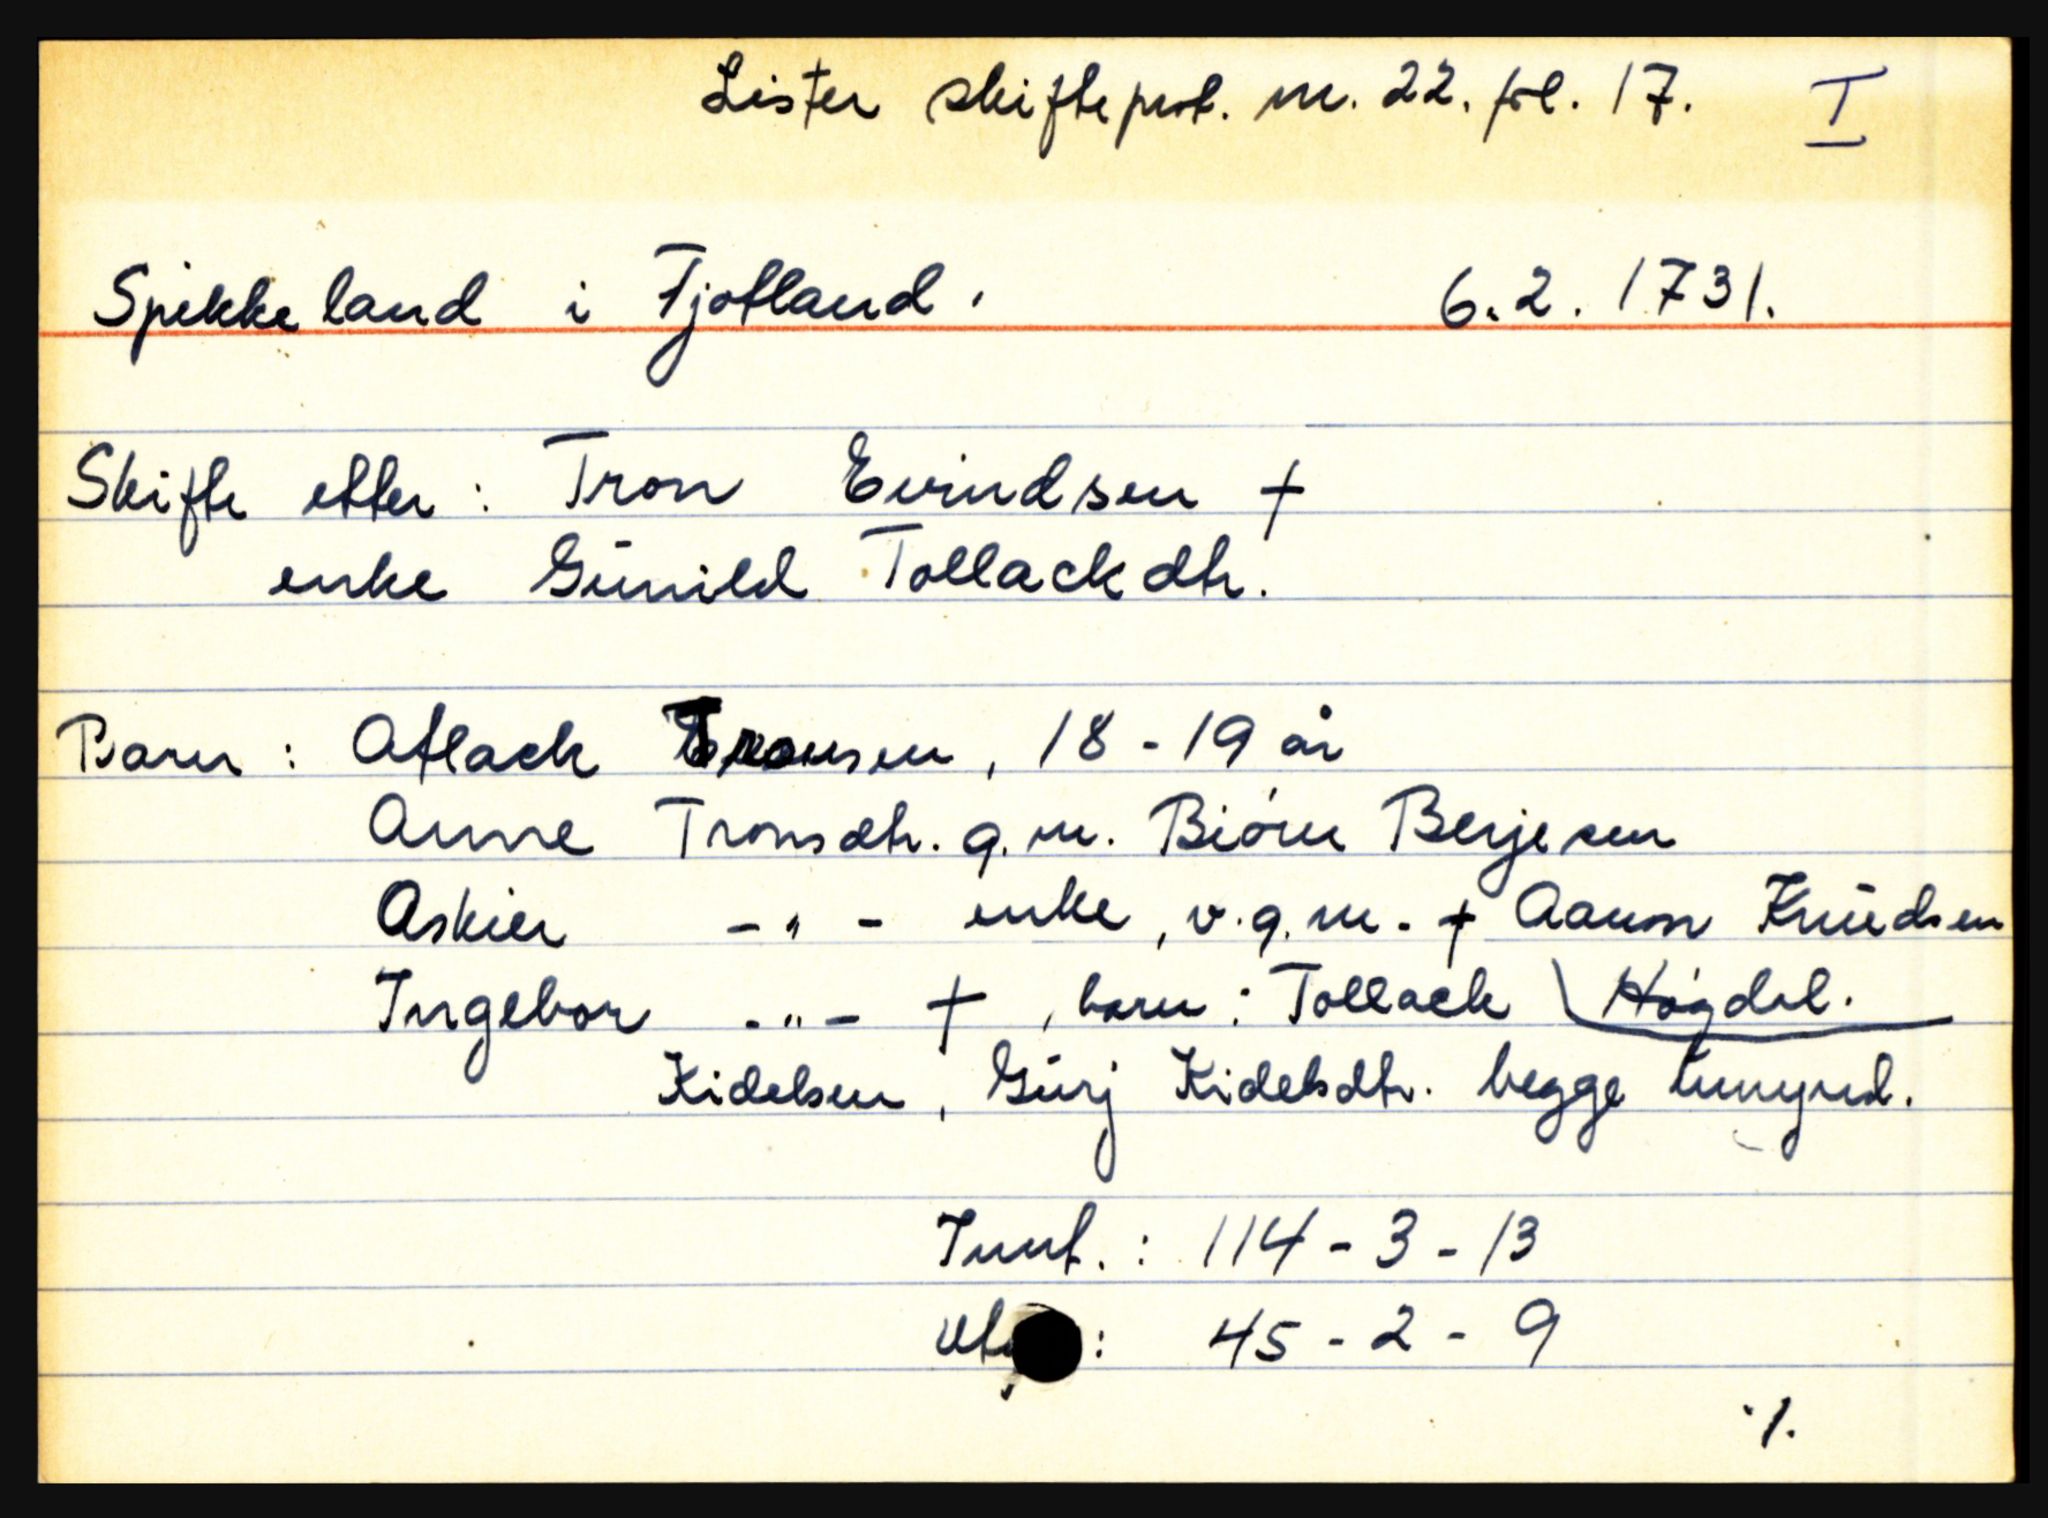 Lister skifteprot. nr. 22. fol. 17. I
Spikkeland i Fjotland. 6.2. 1731.
Skifte etter: Tron Evindsen †
enke Gunild Tollackdtr.
Barn: Atlack Tronsen, 18-19 år
Anne Tronsdtr. g.m. Biórn Berjesen
Askier -"- enke, v.g.m. † Aanon Knudsen
Ingebor -"- †, barn: Tollack Høgdal.
Kidelsen, Gurj Kidelsdtr. begge umynd.
Innt.: 114-3-13
Utg: 45-2-9
./.